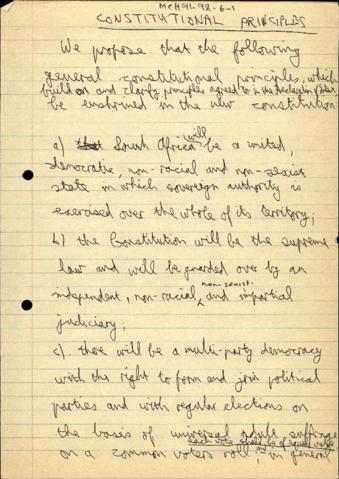 MCH91-92-6-1
CONSTITUTIONAL PRINCIPLES
We propose that the following
general constitutional principles, which
build on and clarify principles agreed to in the Declaration of Intent,
be enshrined in the new constitution:
a) South Africa will be a united,
democratic, non-racial and non-sexist
state in which sovereign authority is
exercised over the whole of its territory;
b) the Constitution will be the supreme
law and will be guarded over by an
independent, non-racial, non-sexist and impartial
judiciary;
c). there will be a multi-party democracy
with the right to form and join political
parties and with regular elections on
the basis of universal adult suffrage
on a common voters roll, each vote shall be of equal value and in general